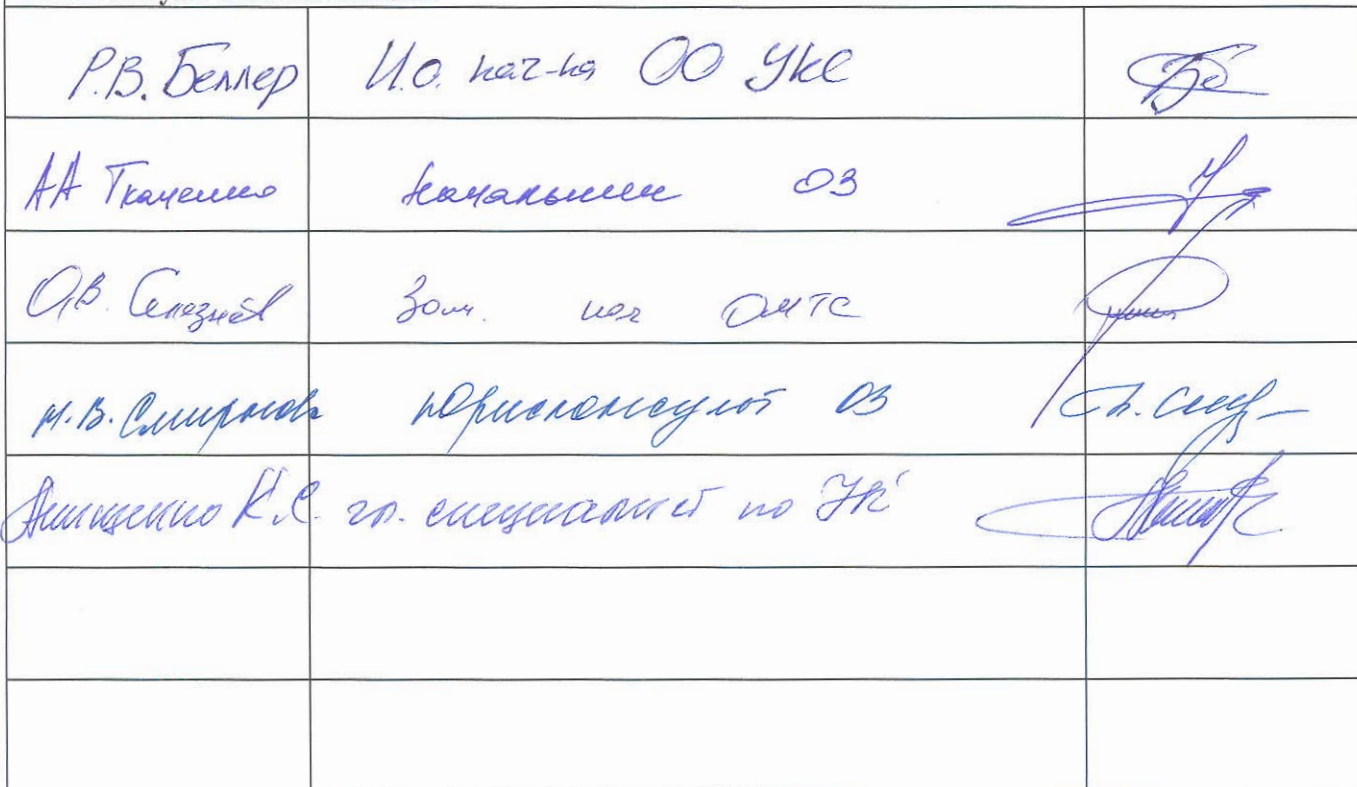 Р.В. Беллер И.о. нач-ка ОО УКС
АА Ткаченко Начальник ОЗ
О.В. Селезнёв Зам. нач ОМТС
М.В. Смирнова Юрисконсульт ОЗ
Анищенко К.С. гл. специалист по УК